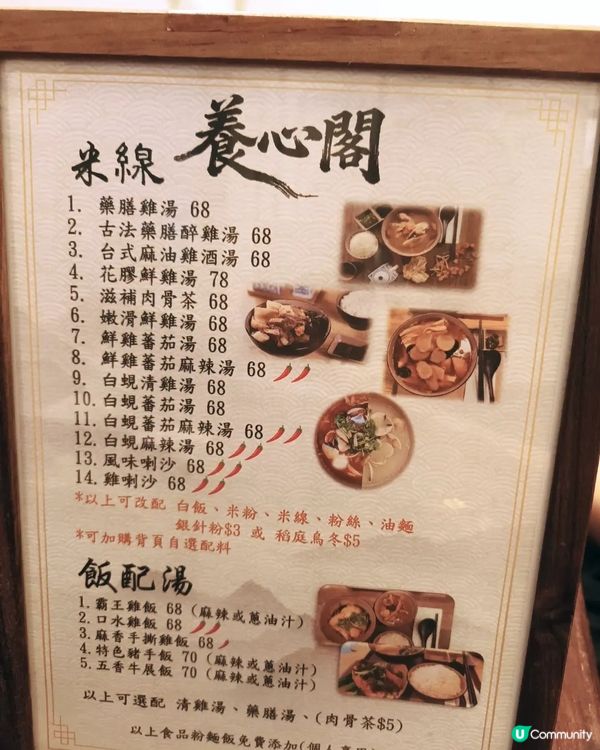 養心閣
米線
1. 藥膳雞湯 68
2. 古法藥膳醉雞湯 68
3. 台式麻油雞酒湯 68
4. 花膠鮮雞湯 78
5. 滋補肉骨茶 68
6. 嫩滑鮮雞湯 68
7. 鮮雞蕃茄湯 68
8. 鮮雞蕃茄麻辣湯 68
9. 白蜆清雞湯 68
10. 白蜆蕃茄湯 68
11. 白蜆蕃茄麻辣湯 68
12. 白蜆麻辣湯 68
13. 風味喇沙 68
14. 雞喇沙 68
*以上可改配 白飯、米粉、米線、粉絲、油麵
銀針粉$3 或 稻庭烏冬$5
*可加購背頁自選配料
飯配湯
1. 霸王雞飯 68 (麻辣或蔥油汁)
2. 口水雞飯 68
3. 麻香手撕雞飯 68
4. 特色豬手飯 70 (麻辣或蔥油汁)
5. 五香牛展飯 70 (麻辣或蔥油汁)
以上可選配 清雞湯、藥膳湯、(肉骨茶$5)
以上食品粉麵飯免費添加(個人
U Community